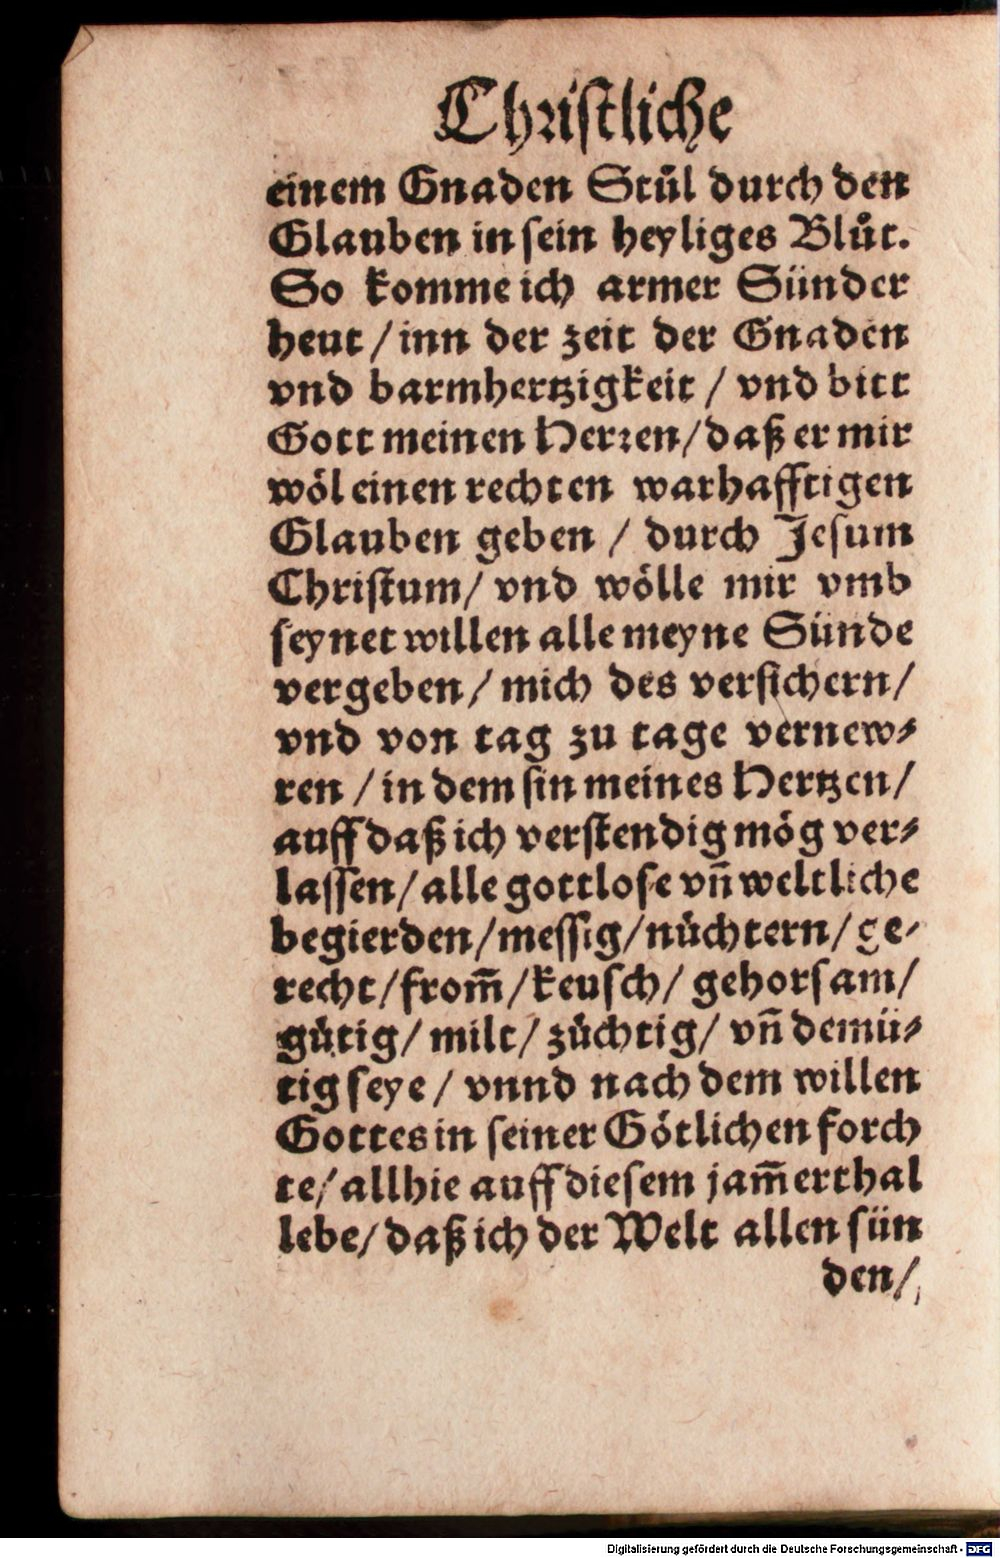 Christliche
einem Gnaden Stůl durch den
Glauben in sein heyliges Blůt.
So komme ich armer Sünder
heut / inn der zeit der Gnaden
vnd barmhertzigkeit / vnd bitt
Gott meinen Herren / daß er mir
wöl einen rechten warhafftigen
Glauben geben / durch Jesum
Christum / vnd wölle mir vmb
seynet willen alle meyne Sünde
vergeben / mich des versichern /
vnd von tag zu tage vernew⸗
ren / in dem sin meines Hertzen /
auff daß ich verstendig mög ver⸗
lassen / alle gottlose vñ weltliche
begierden / messig / nüchtern / ge⸗
recht / from̃ / keusch / gehorsam /
gütig / milt / züchtig / vñ demü⸗
tig seye / vnnd nach dem willen
Gottes in seiner Götlichen forch
te / allhie auff diesem jam̃erthal
lebe / daß ich der Welt allen sün
den /
Digitalisierung gefördert durch die Deutsche Forschungsgemeinschaft - DFG